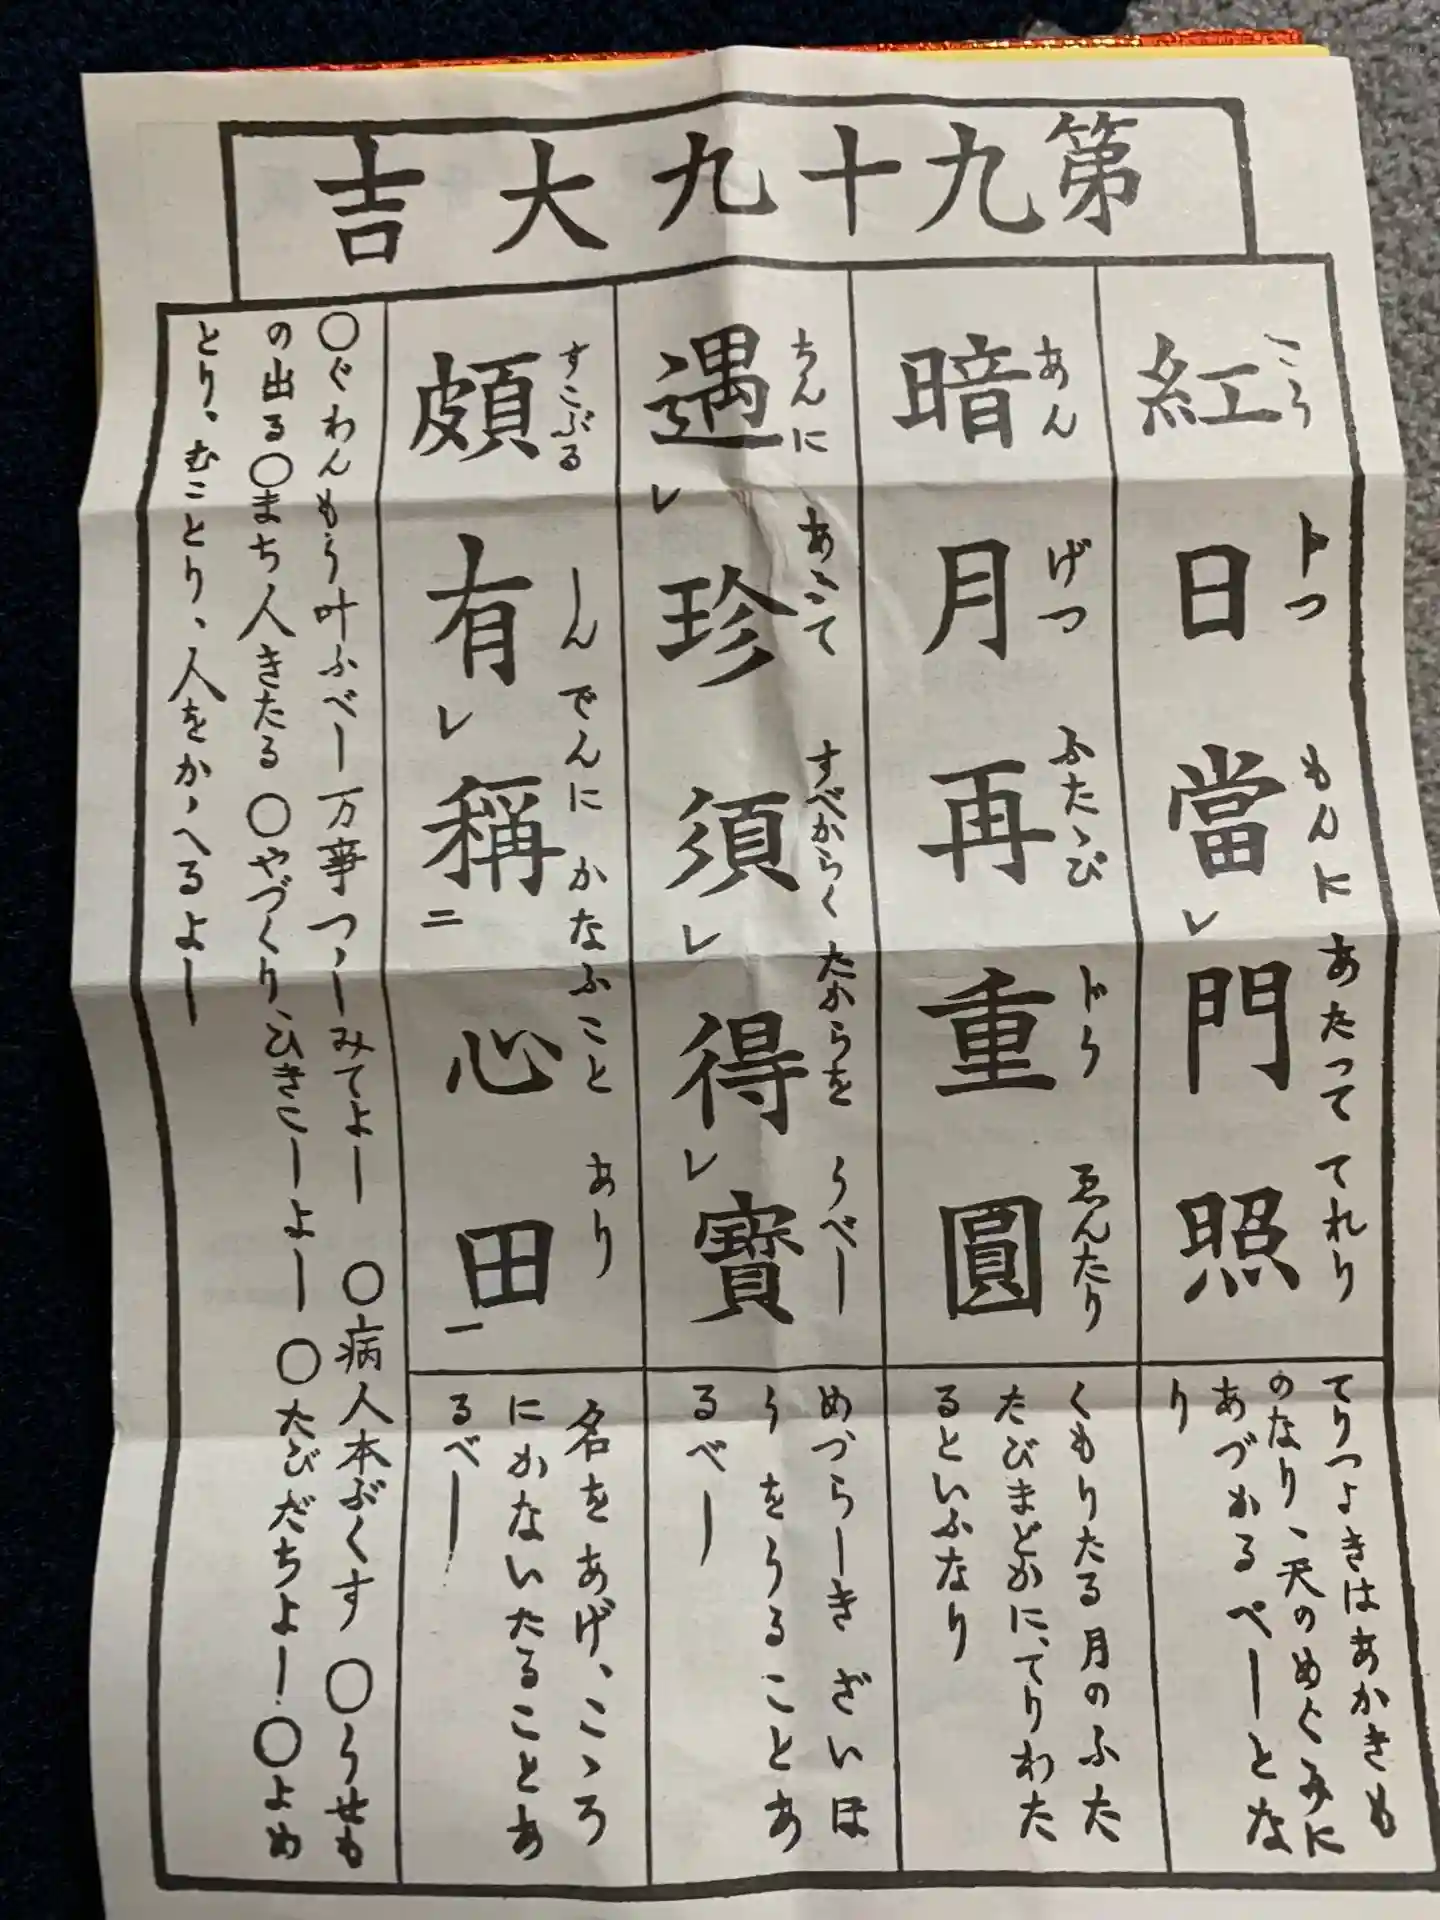 第九十九大吉
紅日當門照
こうじつ もんに あたって てれり
てりつよきはあかきも
のなり、天のめぐみに
あづかるべしとな
り
暗月再重圓
あんげつ ふたゝび ゑんたり
くもりたる月のふた
たびまどかに、てりわた
るといふなり
遇珍須得寶
レ レ レ
ちんに あふて すべからく たからを うべし
めづらしき ざいほ
うをうることあ
るべし
頗有稱心田
レ 二 一
すこぶる しんでんに かなふこと あり
名をあげ、こゝろ
にかないたることあ
るべし
〇ぐわんもう叶ふべし万事つゝしみてよし 〇病人本ぶくす 〇うせも
の出る〇まち人きたる 〇やづくり、ひきこしよし 〇たびだちよし 〇よめ
とり、むことり、人をかゝへるよし